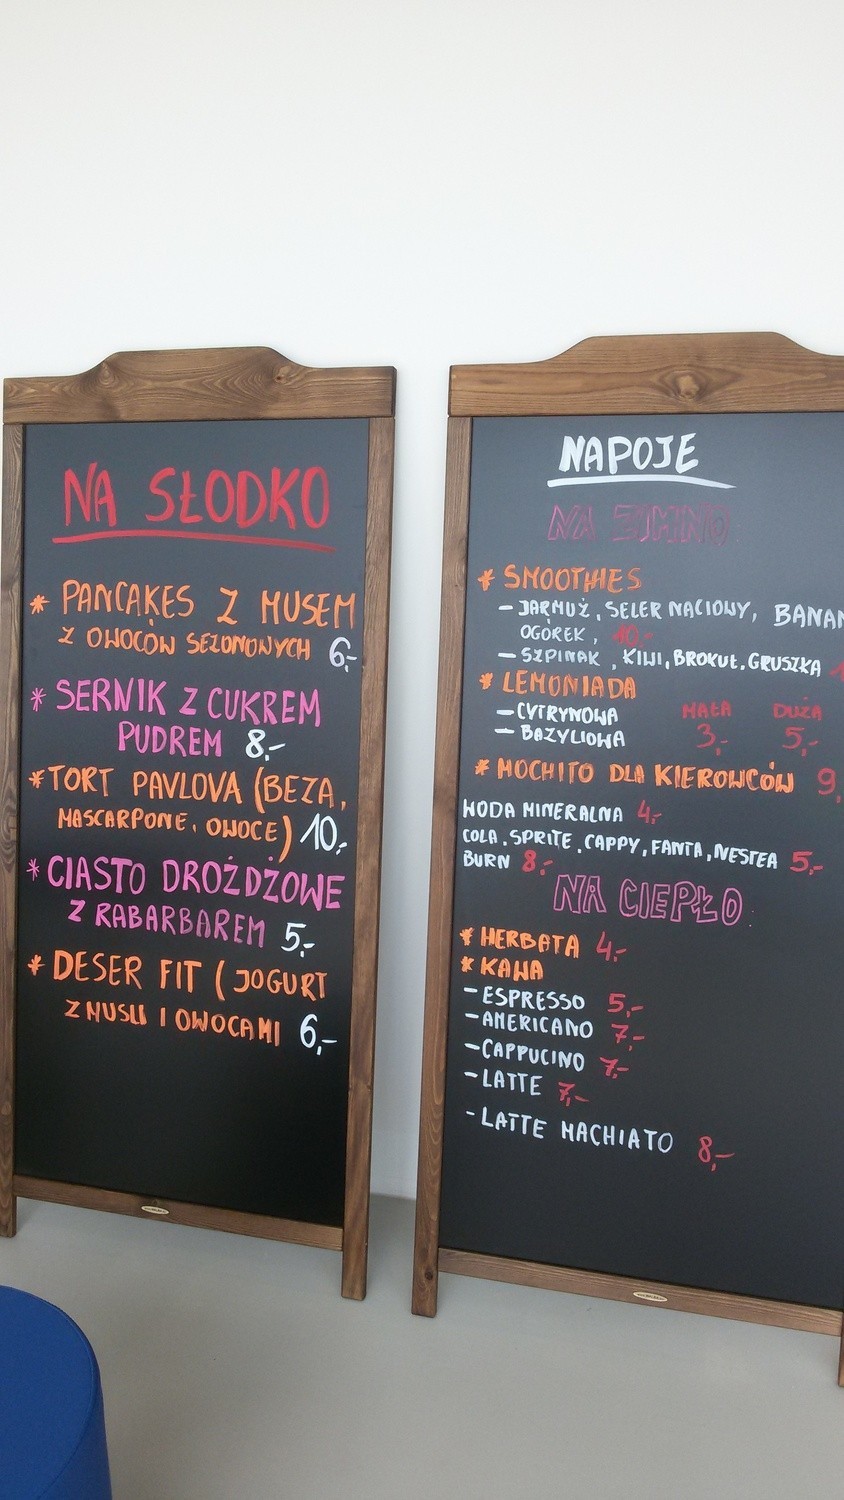 NA SŁODKO
* PANCAKES Z MUSEM
Z OWOCÓW SEZONOWYCH 6,-
* SERNIK Z CUKREM
PUDREM 8,-
* TORT PAVLOVA (BEZA,
MASCARPONE, OWOCE) 10,-
* CIASTO DROŻDŻOWE
Z RABARBAREM 5,-
* DESER FIT ( JOGURT
Z MUSLI I OWOCAMI 6,-
NAPOJE
NA ZIMNO
* SMOOTHIES
- JARMUŻ, SELER NACIOWY, BANAN
OGÓREK, 10,-
- SZPINAK, KIWI, BROKUŁ, GRUSZKA
* LEMONIADA
- CYTRYNOWA MAŁA DUŻA
- BAZYLIOWA 3,- 5,-
* MOCHITO DLA KIEROWCÓW 9,
WODA MINERALNA 4,-
COLA, SPRITE, CAPPY, FANTA, NESTEA 5,-
BURN 8,-
NA CIEPŁO
* HERBATA 4,-
* KAWA
- ESPRESSO 5,-
- AMERICANO 7,-
- CAPPUCINO 7,-
- LATTE 7,-
- LATTE MACHIATO 8,-